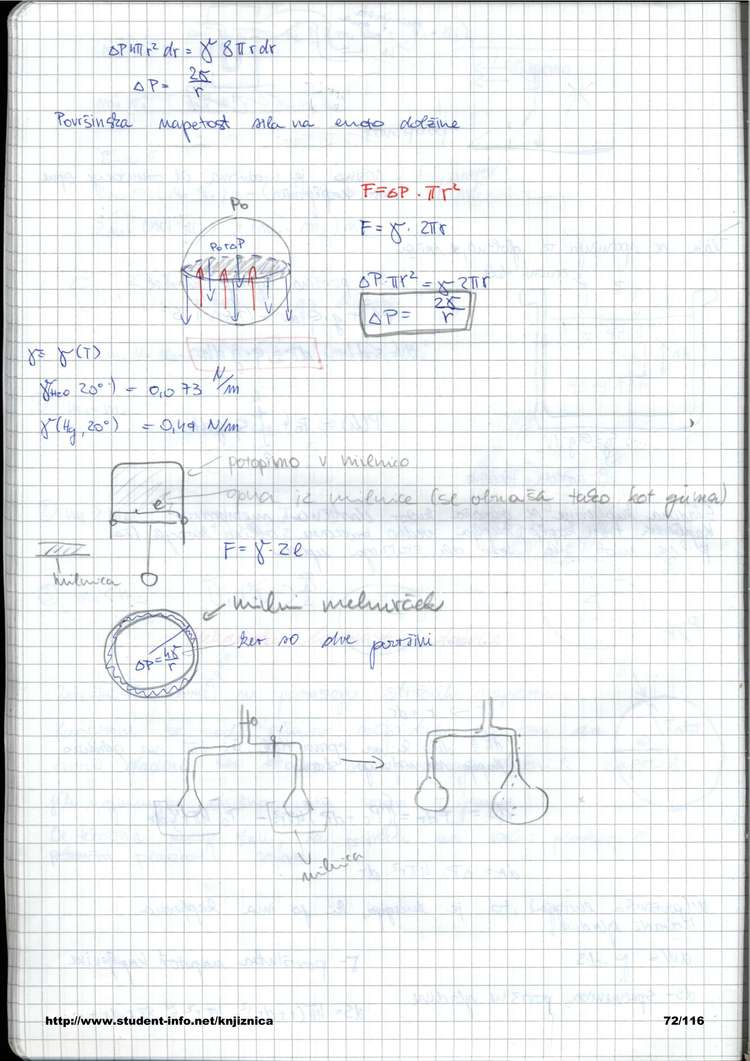 ΔP 4πr² dr = γ 8πr dr
ΔP = 2γ/r
Površinska napetost sila na enoto dolžine
P₀
F = ΔP · πr²
F = γ · 2πr
P₀+ΔP
ΔP · πr² = γ 2πr
ΔP = 2γ/r
γ = γ(T)
γ(H₂O 20°) = 0,073 N/m
γ(Hg, 20°) = 0,49 N/m
potopimo v milnico
opna iz milnice (se obnaša tako kot guma)
l
F = γ · 2l
milnica
milni mehurček
ker so dve površini
ΔP = 4γ/r
milnica
http://www.student-info.net/knjiznica 72/116